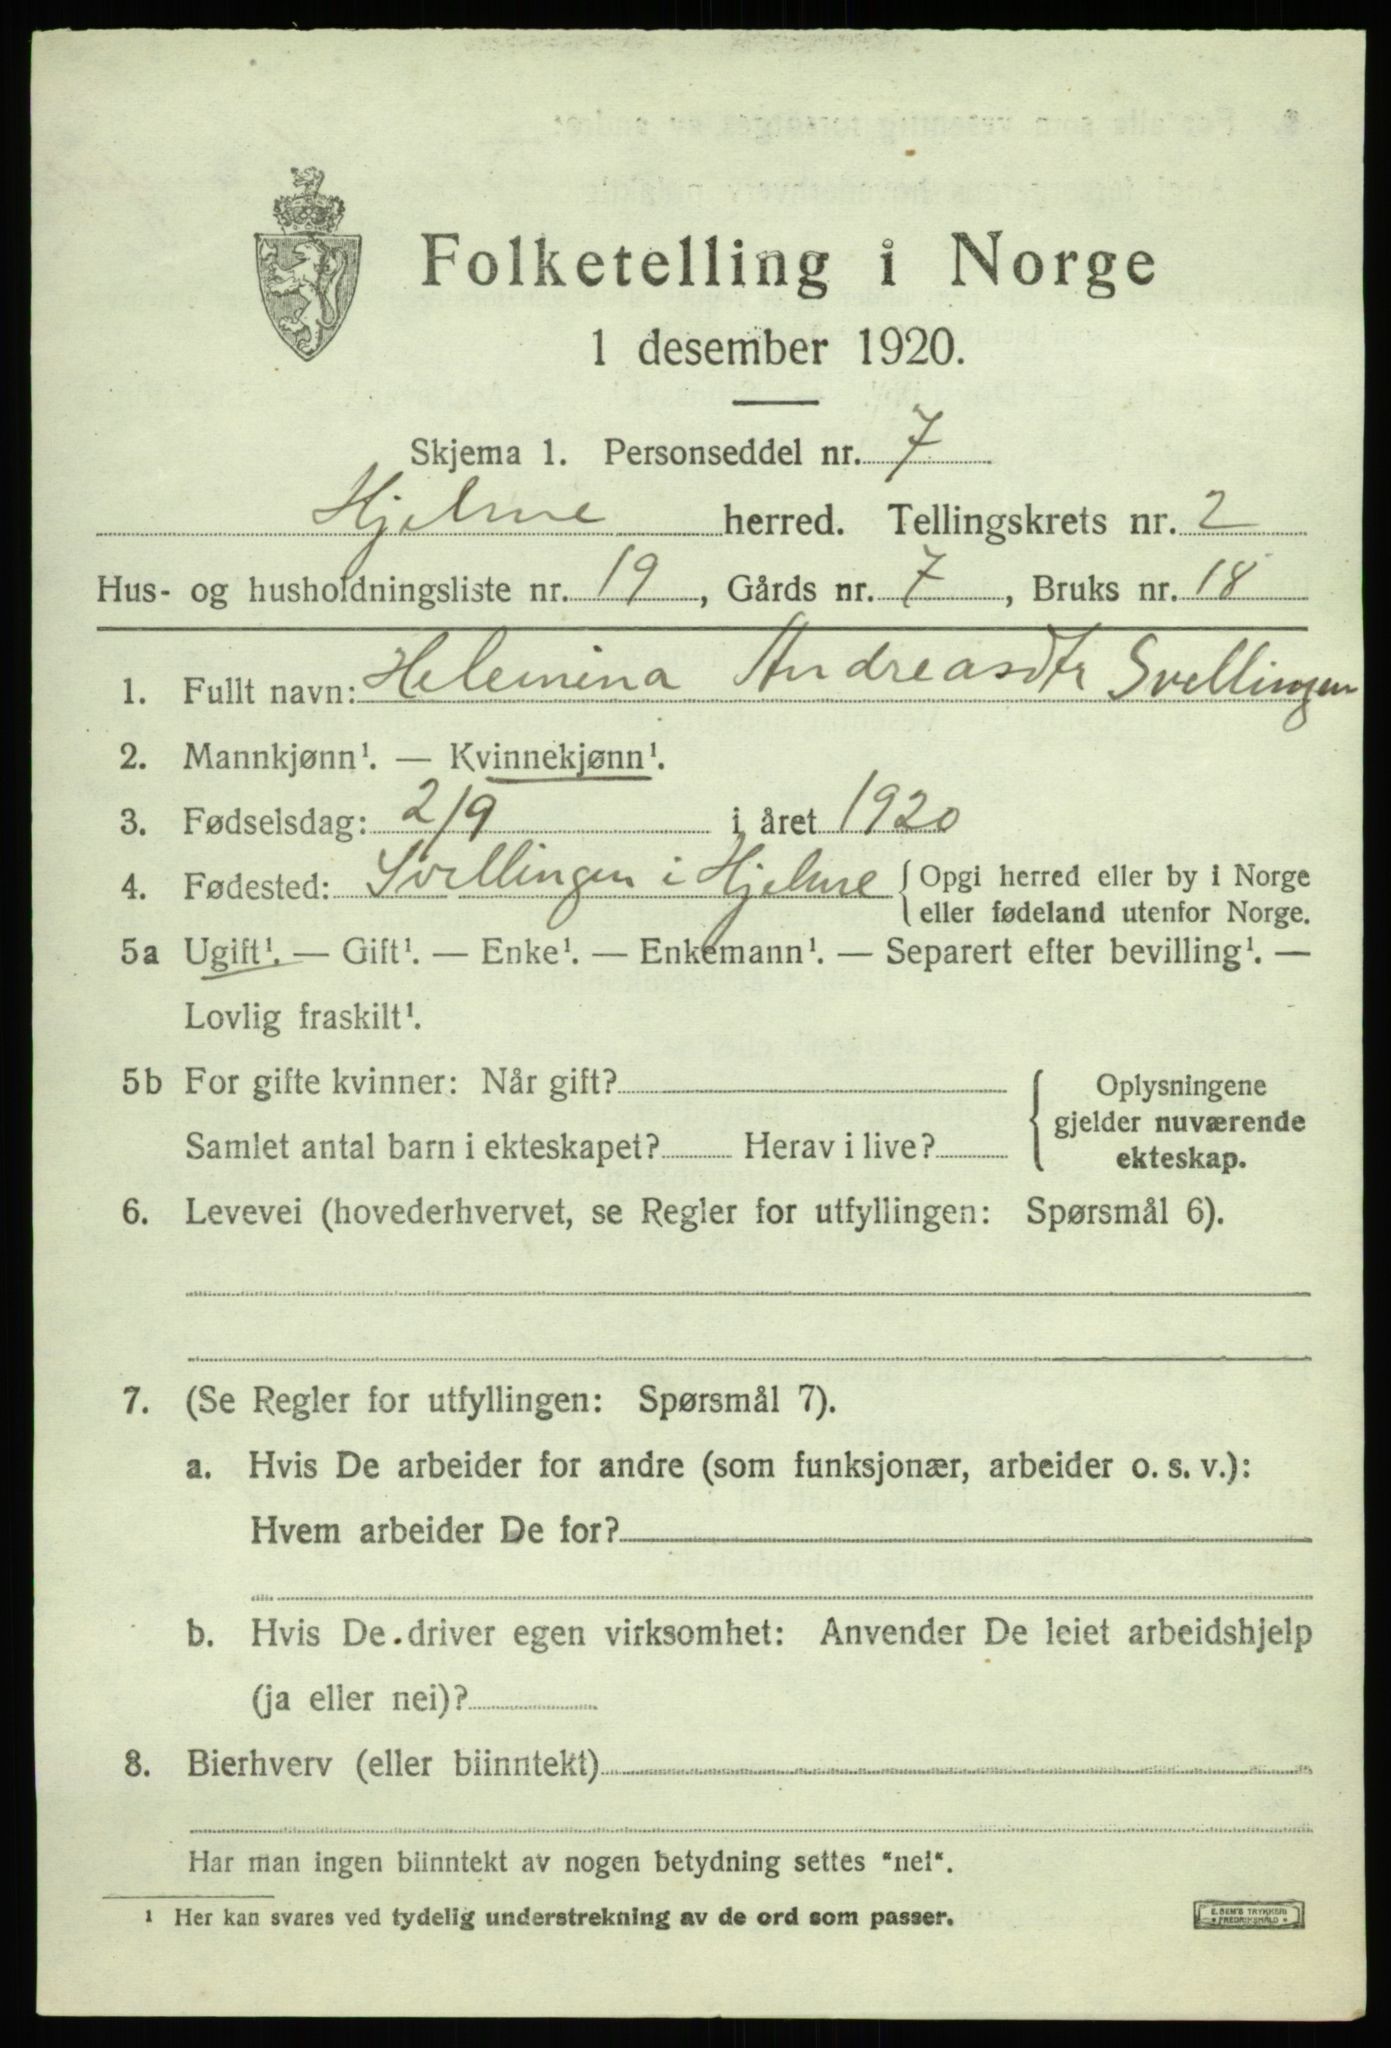 Folketelling i Norge
1 desember 1920.
Skjema 1. Personseddel nr. 7
Hjelme herred. Tellingskrets nr. 2
Hus- og husholdningsliste nr. 19, Gårds nr. 7, Bruks nr. 18
1. Fullt navn: Helemina Andreasdtr Svellingen
2. Mannkjønn¹. — Kvinnekjønn¹.
3. Fødselsdag: 2/9 i året 1920
4. Fødested: Svellingen i Hjelme { Opgi herred eller by i Norge
eller fødeland utenfor Norge.
5a Ugift¹. — Gift¹. — Enke¹. — Enkemann¹. — Separert efter bevilling¹. —
Lovlig fraskilt¹.
5b For gifte kvinner: Når gift?
Samlet antal barn i ekteskapet? Herav i live?
{ Oplysningene
gjelder nuværende
ekteskap.
6. Levevei (hovederhvervet, se Regler for utfyllingen: Spørsmål 6).
7. (Se Regler for utfyllingen: Spørsmål 7).
a. Hvis De arbeider for andre (som funksjonær, arbeider o. s. v.):
Hvem arbeider De for?
b. Hvis De driver egen virksomhet: Anvender De leiet arbeidshjelp
(ja eller nei)?
8. Bierhverv (eller biinntekt)
Har man ingen biinntekt av nogen betydning settes "nei".
¹ Her kan svares ved tydelig understrekning av de ord som passer.
E. SEM'S TRYKKERI
FREDRIKSHALD